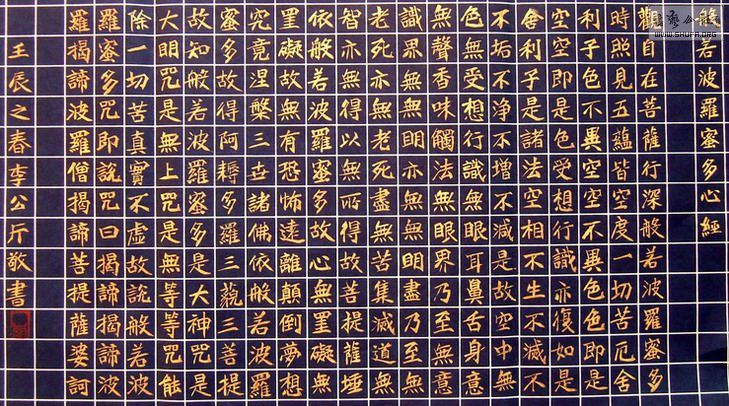 般若波羅蜜多心經
觀自在菩薩行深般若波羅蜜多
時照見五蘊皆空度一切苦厄舍
利子色不異空空不異色色即是
空空即是色受想行識亦復如是
舍利子是諸法空相不生不滅不
不垢不淨不增不減是故空中無
色無受想行識無眼耳鼻舌身意
無聲香味觸法無眼界乃至無意
識界無無明亦無無明盡乃至無
老死亦無老死盡無苦集滅道無
智亦無得以無所得故菩提薩埵
依般若波羅蜜多故心無罣礙無
罣礙故無有恐怖遠離顛倒夢想
究竟涅槃三世諸佛依般若波羅
蜜多故得阿耨多羅三藐三菩提
故知般若波羅蜜多是大神咒是
大明咒是無上咒是無等等咒能
除一切苦真實不虛故說般若波
羅蜜多咒即說咒曰揭諦揭諦波
羅揭諦波羅僧揭諦菩提薩婆訶
壬辰之春李公斤敬書
WWW.SHUFA.ORG